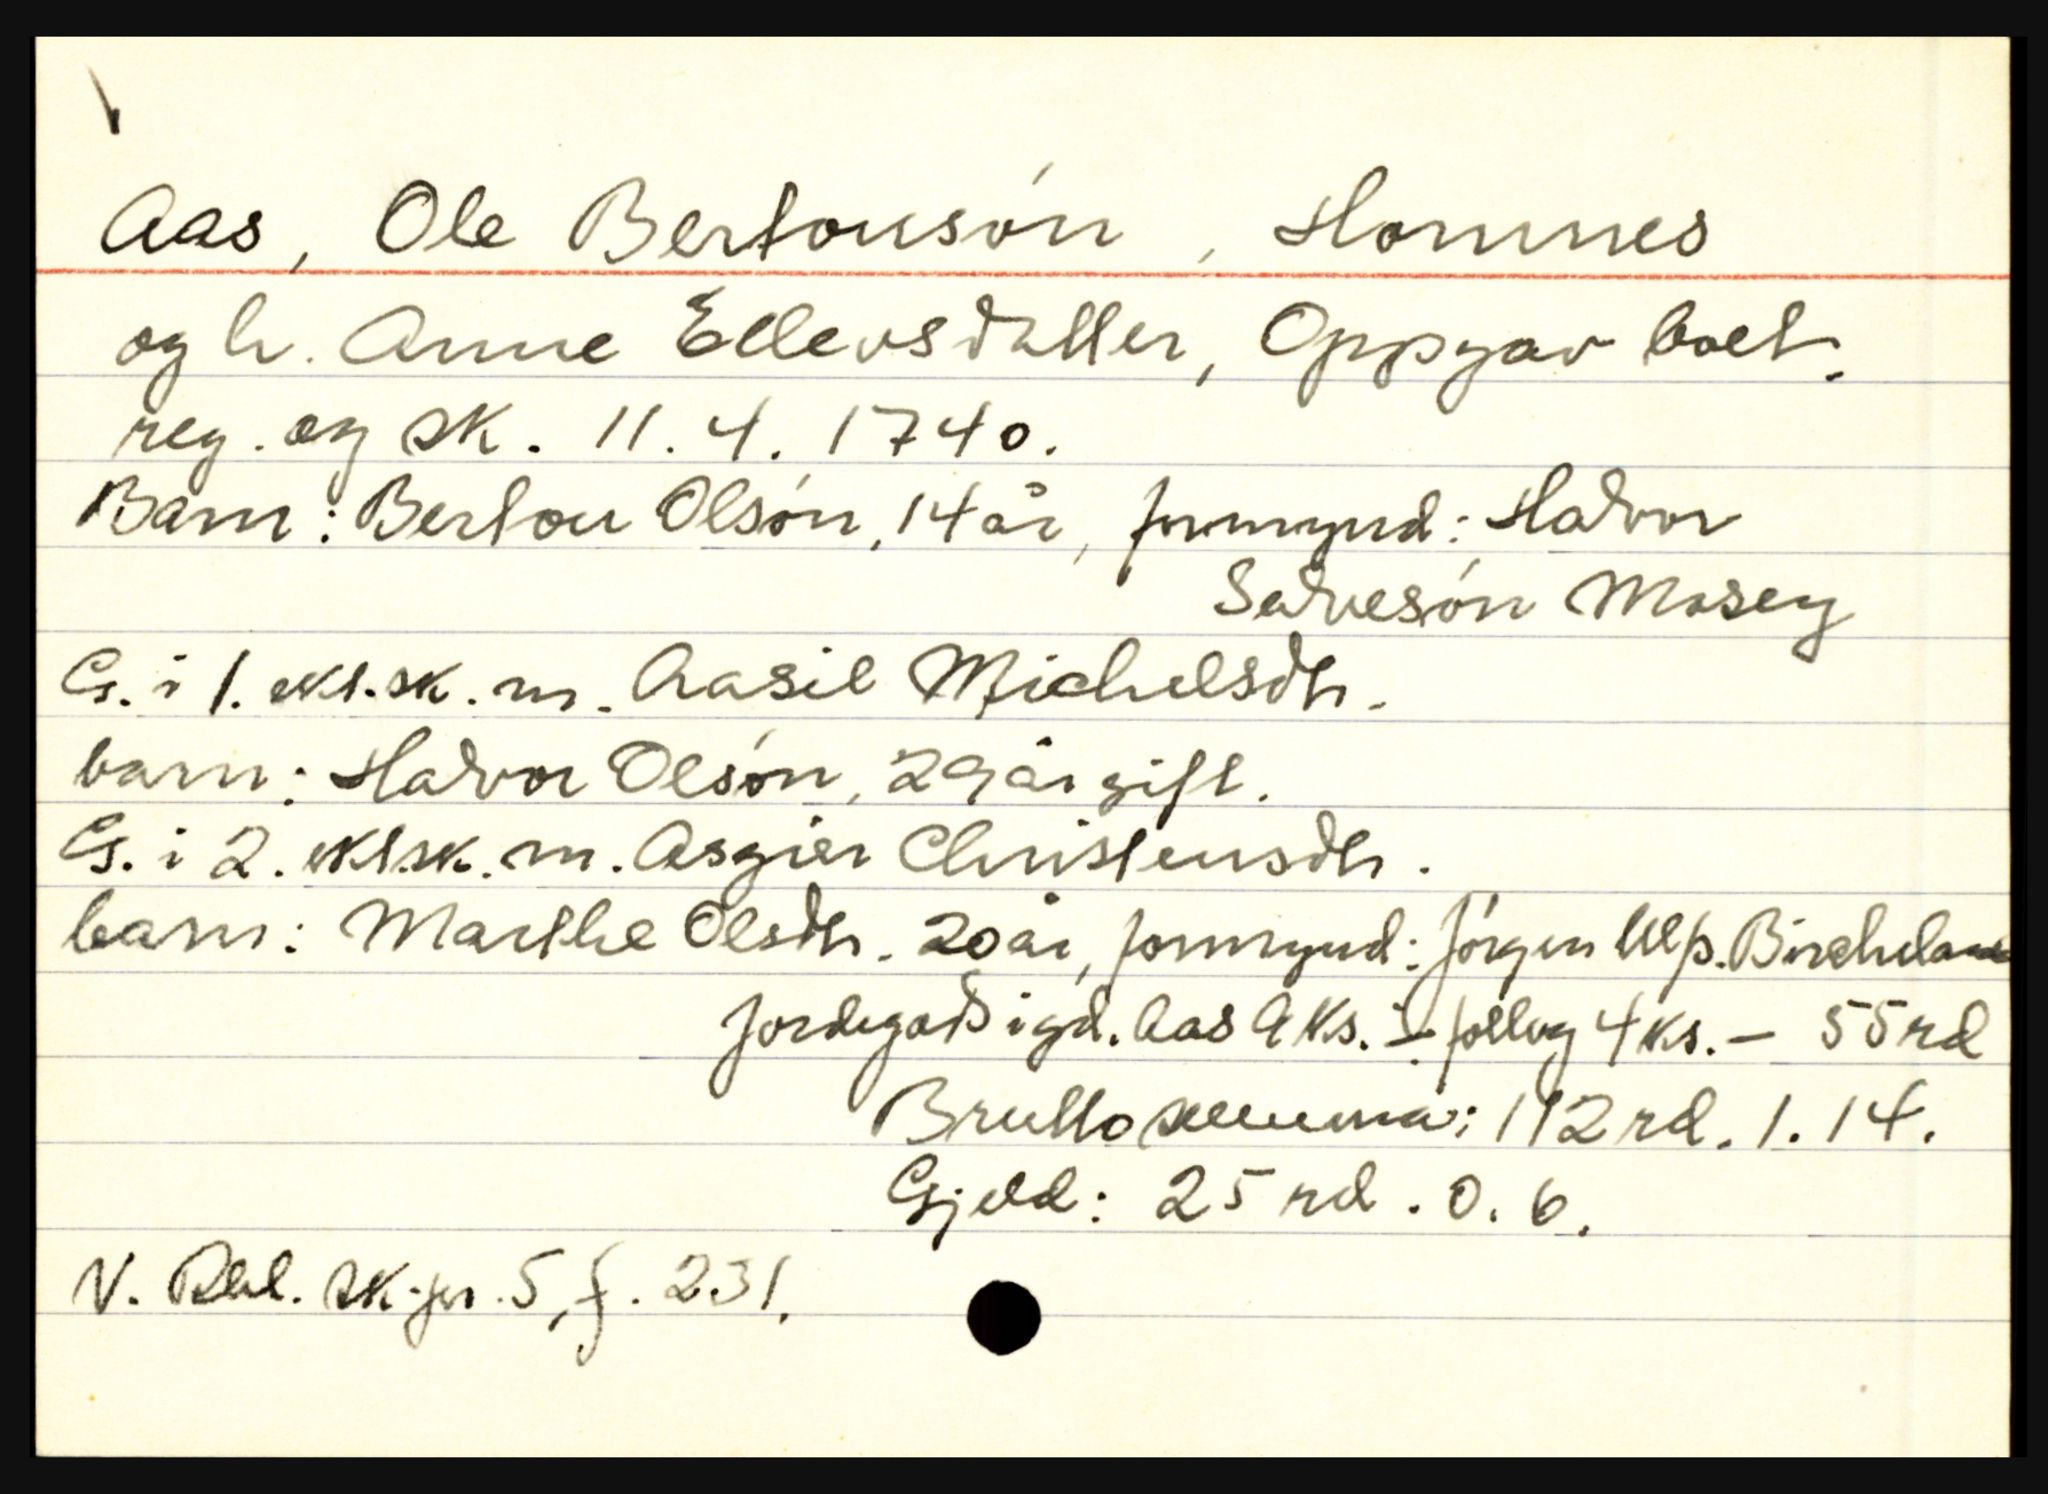 Aas, Ole Bertousón, Hommes
og h. Anne Ellevsdatter, Oppgav boet.
reg. og sk. 11.4.1740.
Barn: Bertou Olsón, 14 år, formynd: Halvor
Salvesón Mosey
G. i 1. ekt.sk. m. Aasil Michelsdtr.
barn: Halvor Olsón, 29 år gift.
G. i 2. ekt.sk. m. Asgier Christensdtr.
barn: Marthe Olsdtr. 20 år, formynd: Jórgen Ulfs. Bircheland
Jordegods i gd. Aas 9 ks. i follog 4 ks. - 55 rd
Brutto summa: 112 rd. 1. 14.
Gjeld: 25 rd. 0. 6.
V. Rbl. sk.pr. 5, f. 231.